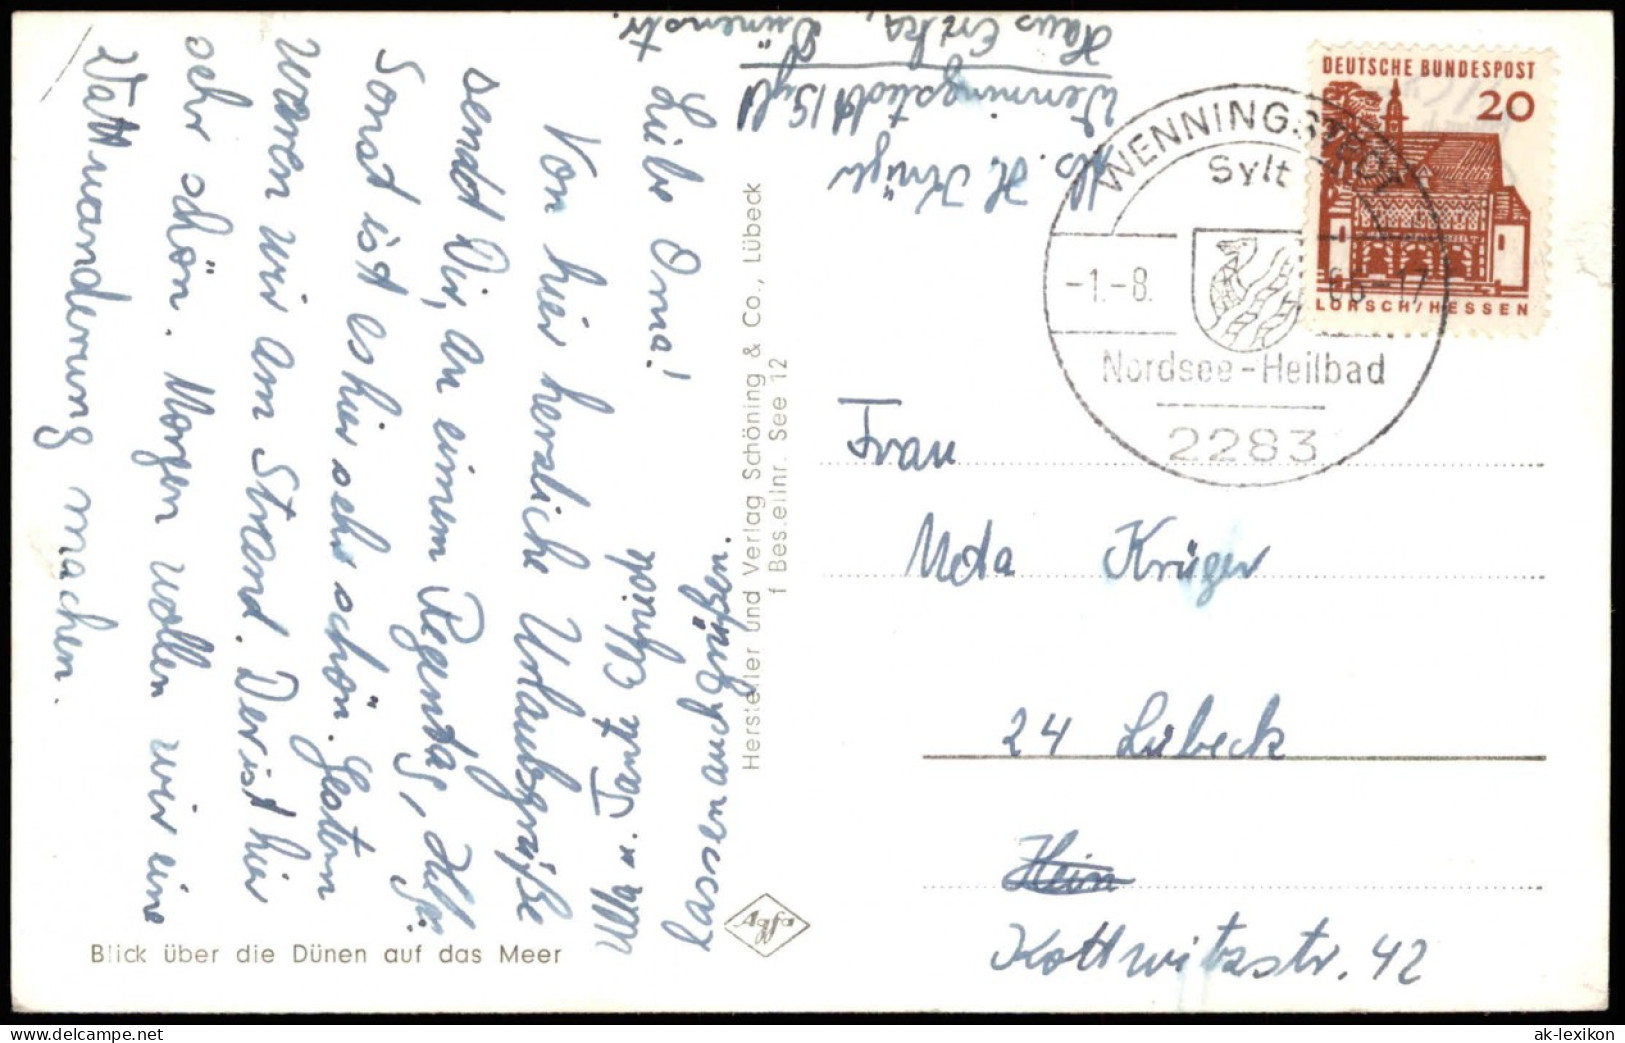 Liebe Oma!
Von hier herzliche Urlaubsgrüße
sendet Dir, An einem Regentag,
Sonst ist es hier sehr schön. Gestern
waren wir am Strand. Der ist hier
sehr schön. Morgen wollen wir eine
Wattwanderung machen.
Mutti u. Tante
lassen auch grüßen.
Blick über die Dünen auf das Meer
Hersteller und Verlag Schöning & Co., Lübeck
f Bes.eilnr. See 12
Agfa
Abs. H. Krüger
Wenningstedt/Sylt
Haus Erika, Dünenstr.
WENNINGSTEDT
Sylt
-1.-8. 66-17
Nordsee-Heilbad
2283
DEUTSCHE BUNDESPOST
20
LORSCH/HESSEN
Frau
Meta Krüger
24 Lübeck
Kottwitzstr. 42
ak-ansichtskarten.de
ak-lexikon